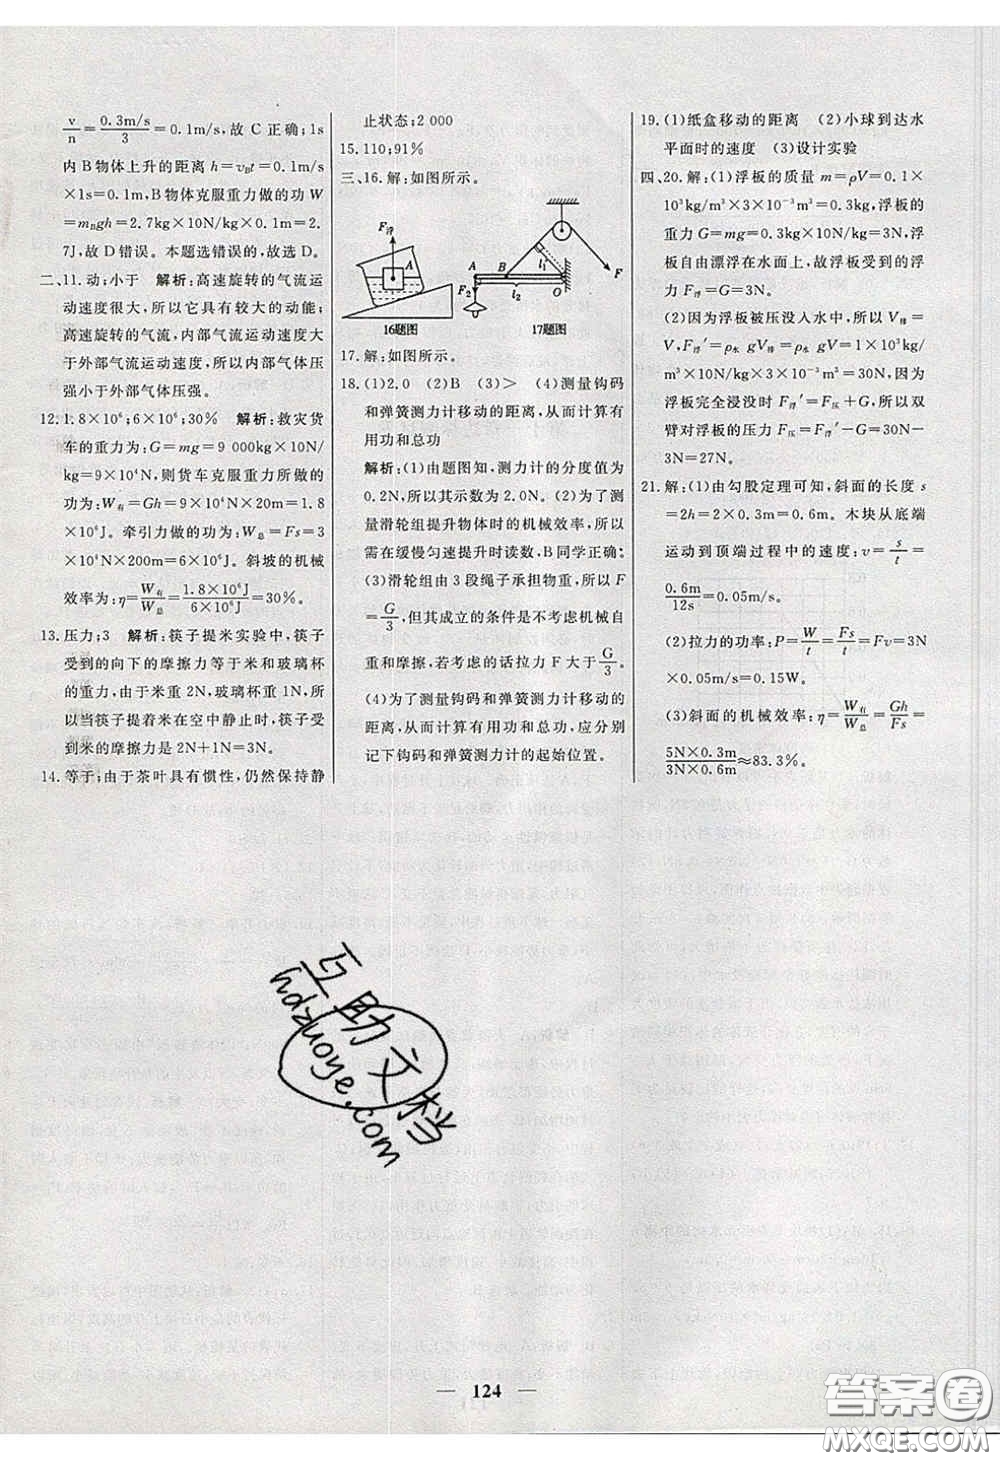 v/n=0.3m/s/3=0.1m/s,故 C 正确;1s
内 B 物体上升的距离 h=v_Bt=0.1m/s
×1s=0.1m,B 物体克服重力做的功 W
=m_Bgh=2.7kg×10N/kg×0.1m=2.
7J,故 D 错误。本题选错误的,故选 D。
二、11.动;小于 解析:高速旋转的气流运
动速度很大,所以它具有较大的动能;
高速旋转的气流,内部气流运动速度大
于外部气流运动速度,所以内部气体压
强小于外部气体压强。
12.1.8×10⁶;6×10⁶;30% 解析:救灾货
车的重力为:G=mg=9 000kg×10N/
kg=9×10⁴N,则货车克服重力所做的
功为:W有=Gh=9×10⁴N×20m=1.8
×10⁶J。牵引力做的功为:W总=Fs=3
×10⁴N×200m=6×10⁶J。斜坡的机械
效率为:η=W有/W总=1.8×10⁶J/6×10⁶J=30%。
13.压力;3 解析:筷子提米实验中,筷子
受到的向下的摩擦力等于米和玻璃杯
的重力,由于米重 2N,玻璃杯重 1N,所
以当筷子提着米在空中静止时,筷子受
到米的摩擦力是 2N+1N=3N。
14.等于;由于茶叶具有惯性,仍然保持静
止状态;2 000
15.110;91%
三、16.解:如图所示。
F浮
A
16题图
A
B
F₂
l₁
l₂
O
F
17题图
17.解:如图所示。
18.(1)2.0 (2)B (3)> (4)测量钩码
和弹簧测力计移动的距离,从而计算有
用功和总功
解析:(1)由题图知,测力计的分度值为
0.2N,所以其示数为 2.0N。(2)为了测
量滑轮组提升物体时的机械效率,所以
需在缓慢匀速提升时读数,B 同学正确。
(3)滑轮组由 3 段绳子承担物重,所以 F
=G/3,但其成立的条件是不考虑机械自
重和摩擦,若考虑的话拉力 F 大于G/3。
(4)为了测量钩码和弹簧测力计移动的
距离,从而计算有用功和总功,应分别
记下钩码和弹簧测力计的起始位置。
19.(1)纸盒移动的距离 (2)小球到达水
平面时的速度 (3)设计实验
四、20.解:(1)浮板的质量 m=ρV=0.1×
10³kg/m³×3×10⁻³m³=0.3kg,浮板的
重力 G=mg=0.3kg×10N/kg=3N,浮
板自由漂浮在水面上,故浮板所受的浮
力 F浮=G=3N。
(2)因为浮板被压没入水中,所以 V排=
V,F浮′=ρ水 gV排=ρ水 gV=1.0×
10³kg/m³×10N/kg×3×10⁻³m³=30N,因为
浮板完全浸没时 F浮′=F压+G,所以双
臂对浮板的压力 F压=F浮′-G=30N-
3N=27N。
21.解:(1)由勾股定理可知,斜面的长度 s
=2h=2×0.3m=0.6m。木块从底端
运动到顶端过程中的速度:v=s/t=
0.6m/12s=0.05m/s。
(2)拉力的功率:P=W/t=Fs/t=Fv=3N
×0.05m/s=0.15W。
(3)斜面的机械效率:η=W有/W总=Gh/Fs=
5N×0.3m/3N×0.6m≈83.3%。
互助文档
hdzuoye.com
124
答案圈
MXQE.COM